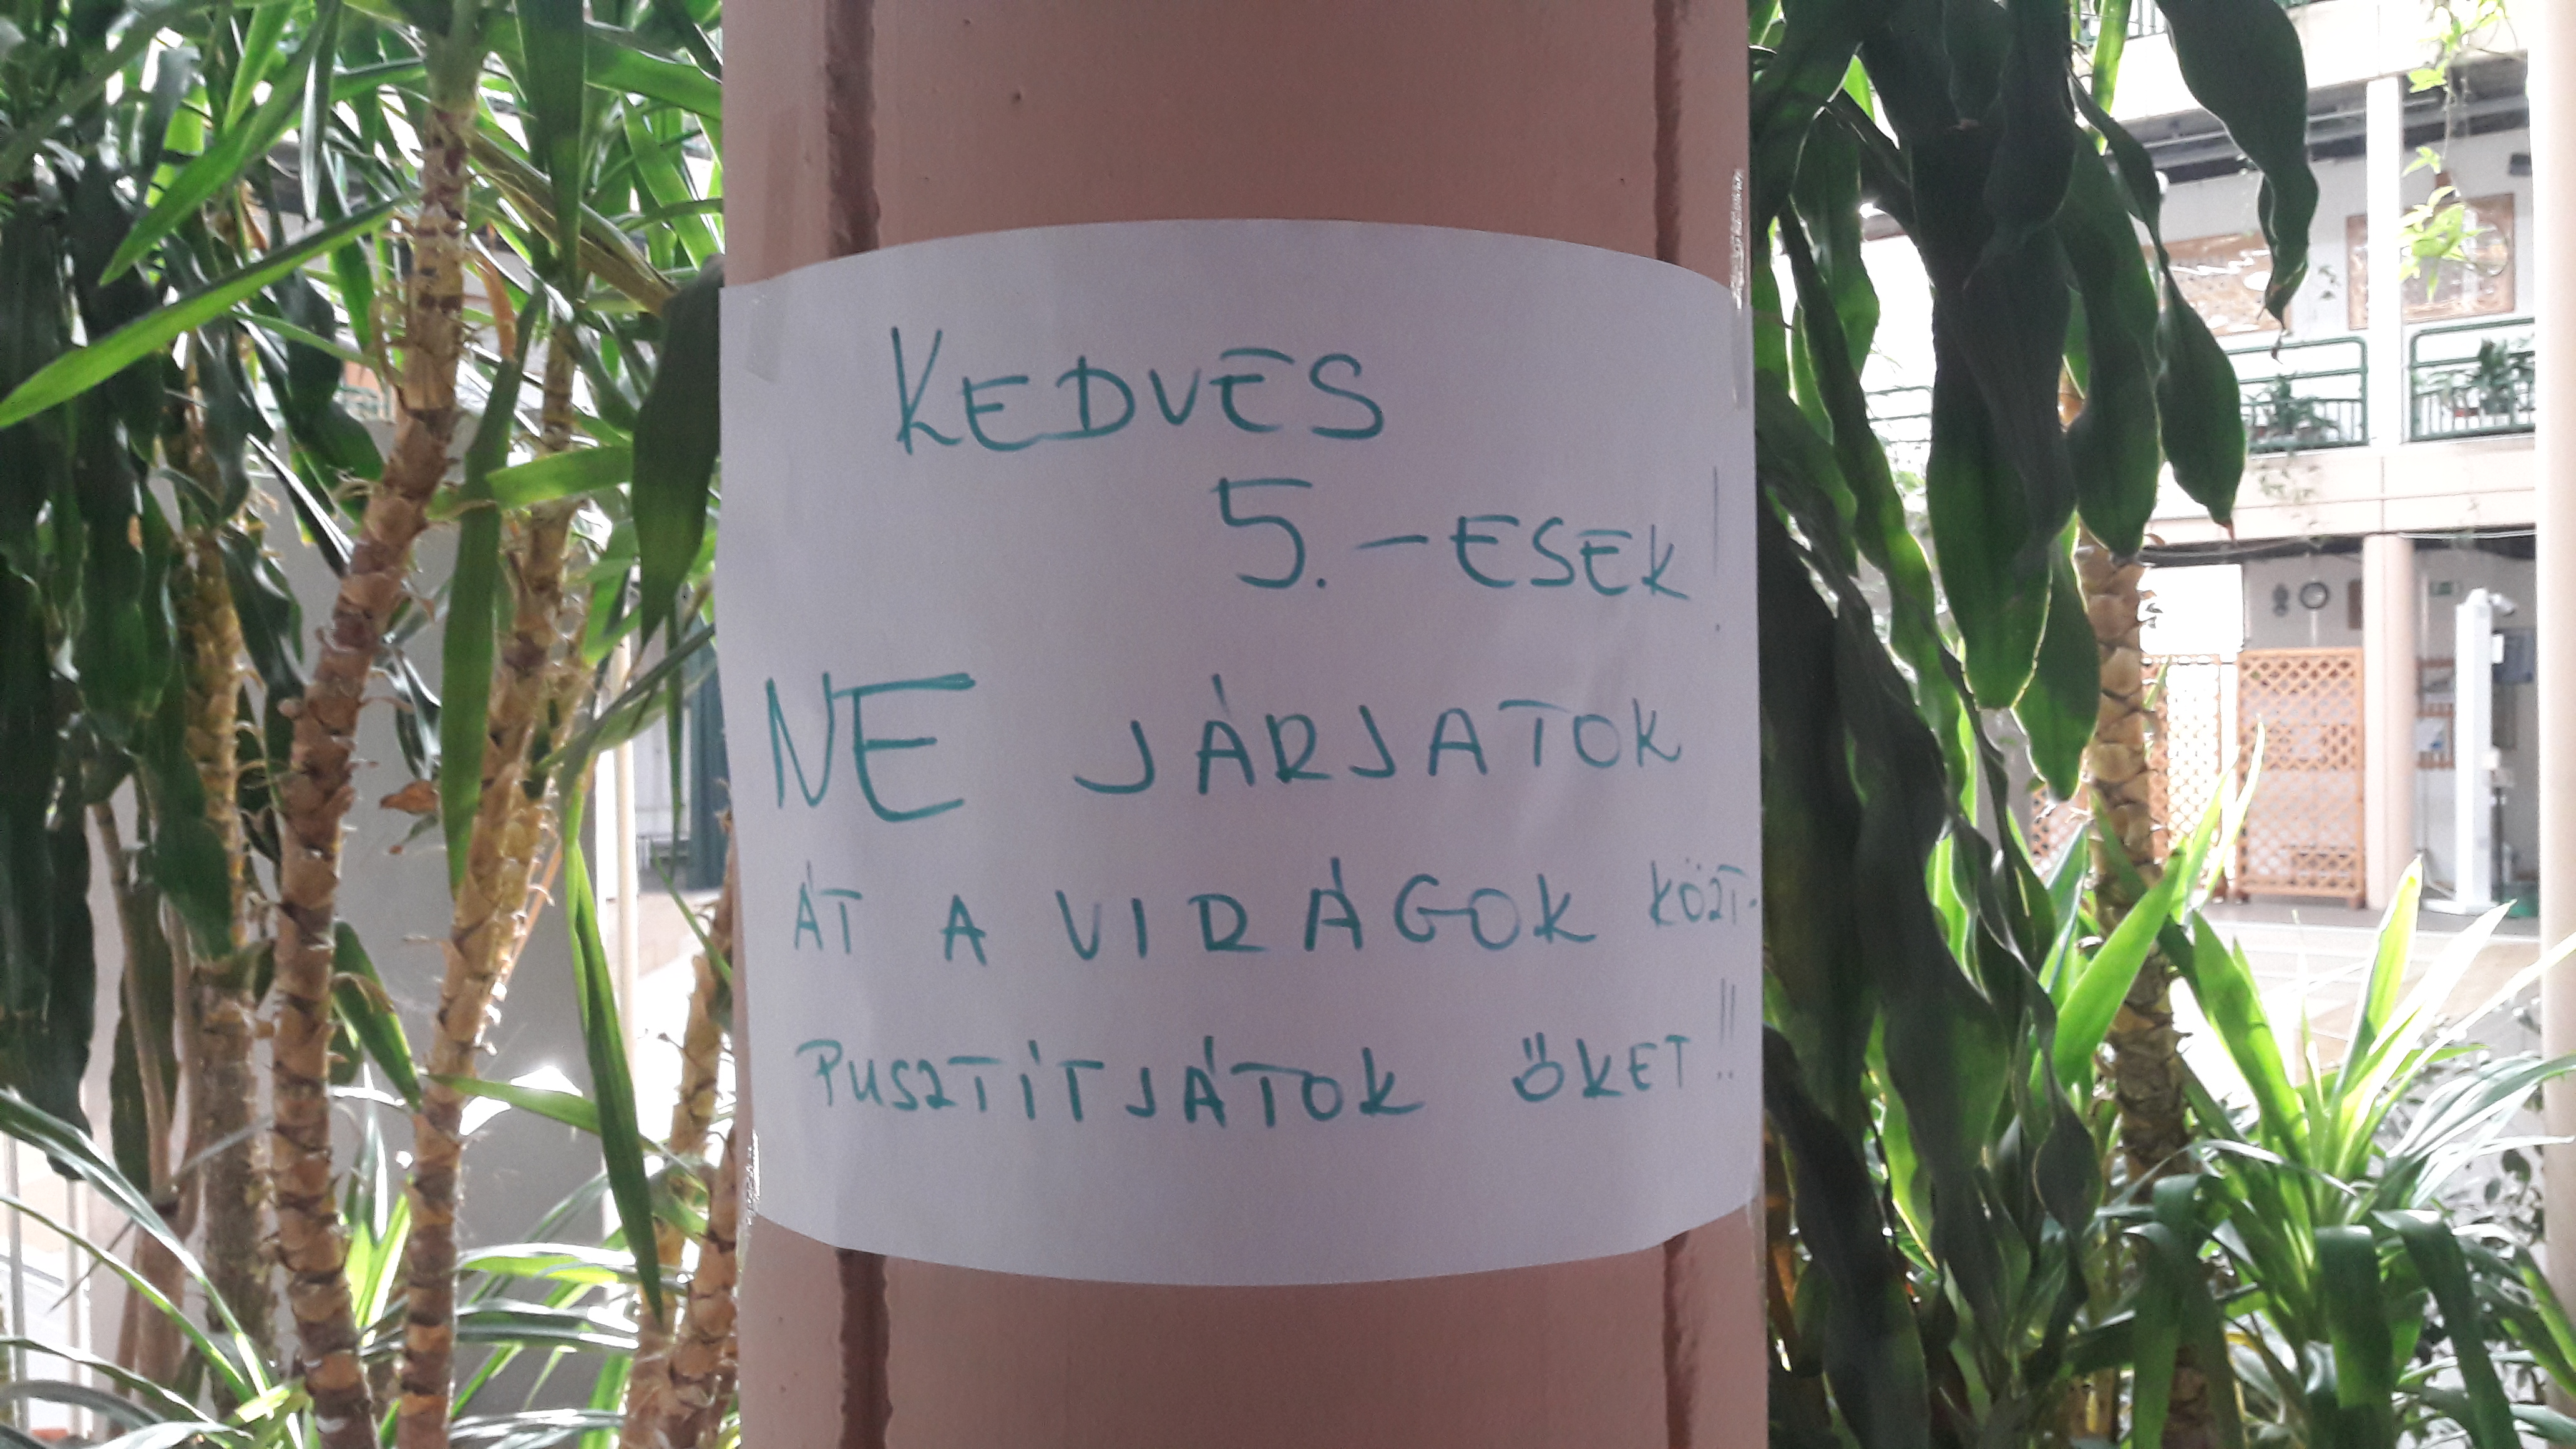 KEDVES
5.-ESEK!
NE JÁRJATOK
ÁT A VIRÁGOK KÖZT.
PUSZTÍTJÁTOK ŐKET!!